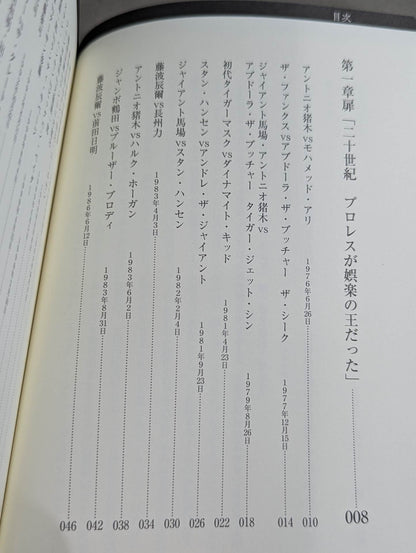 目次
第一章扉「二十世紀 プロレスが娯楽の王だった」 008
アントニオ猪木vsモハメッド・アリ 1976年6月26日 010
ザ・ファンクスvsアブドーラ・ザ・ブッチャー ザ・シーク 1977年12月15日 014
ジャイアント馬場・アントニオ猪木vs
アブドーラ・ザ・ブッチャー タイガー・ジェット・シン 1979年8月26日 018
初代タイガーマスクvsダイナマイト・キッド 1981年4月23日 022
スタン・ハンセンvsアンドレ・ザ・ジャイアント 1981年9月23日 026
ジャイアント馬場vsスタン・ハンセン 1982年2月4日 030
藤波辰爾vs長州力 1983年4月3日 034
アントニオ猪木vsハルク・ホーガン 1983年6月2日 038
ジャンボ鶴田vsブルーザー・ブロディ 1983年8月31日 042
藤波辰爾vs前田日明 1986年6月12日 046